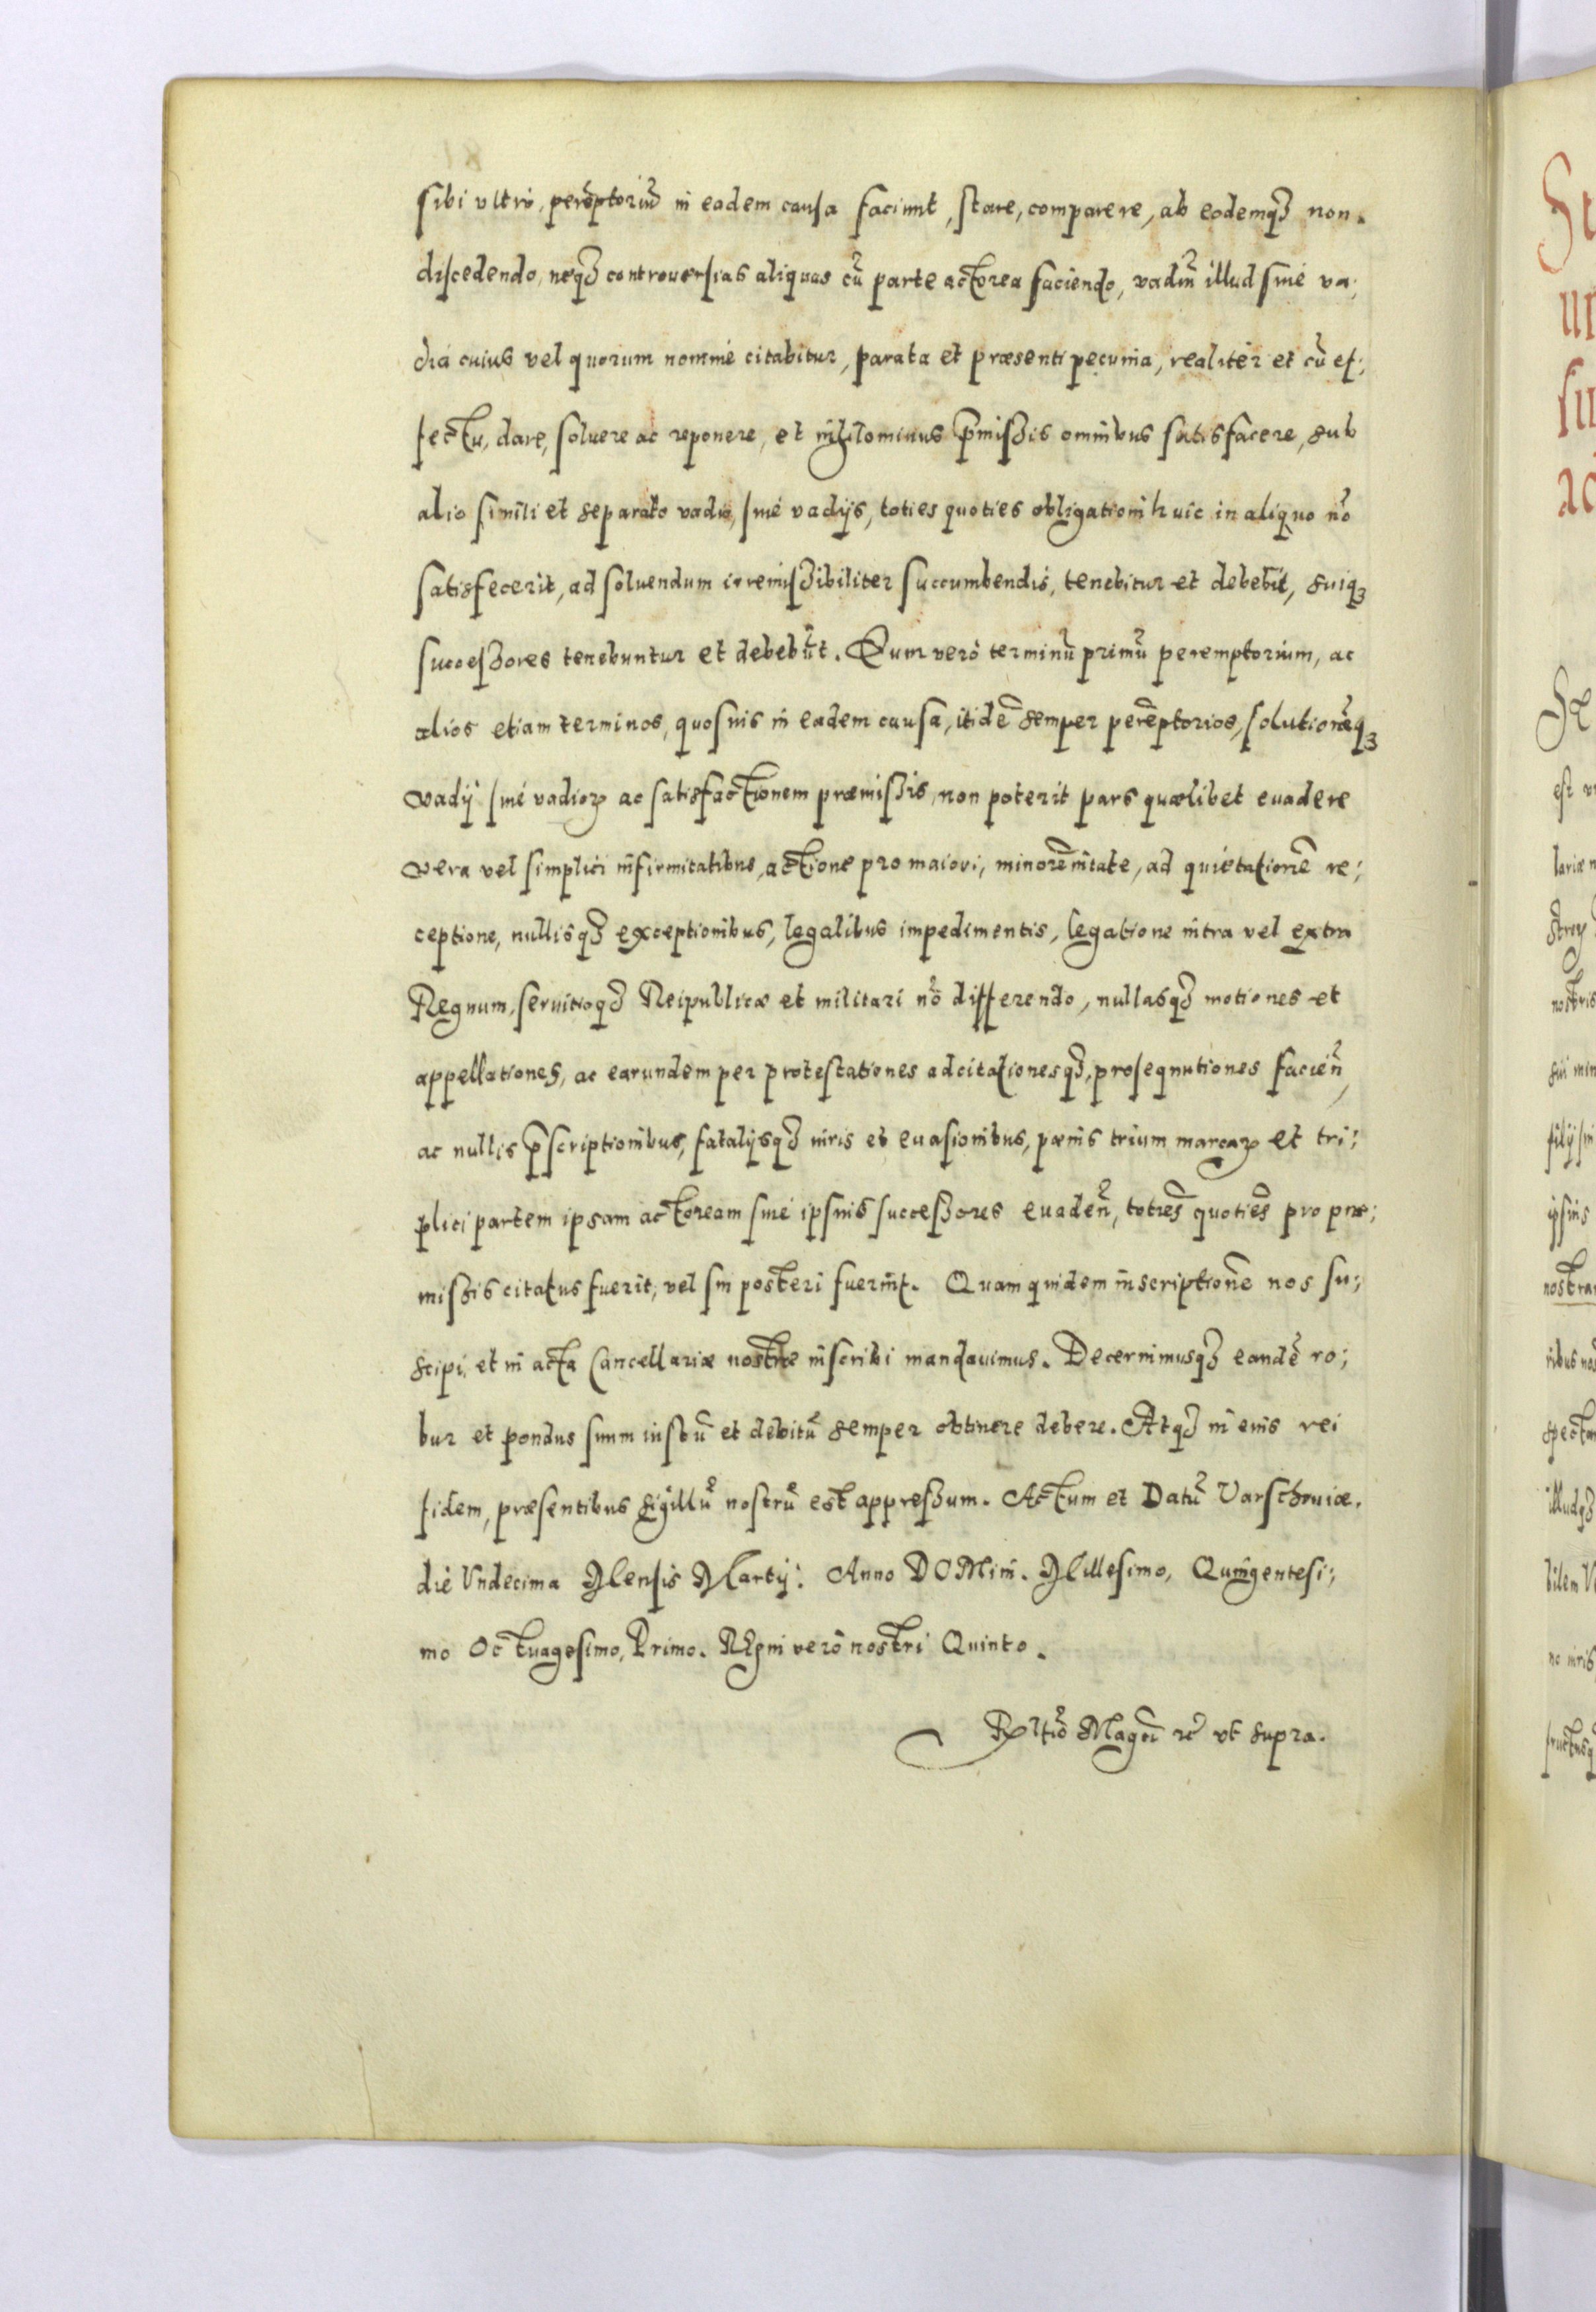 sibi vltrò, perēptoriũ in eadem causa faciunt, stare, comparere, ab eodemq₃ non.
discedendo, neq₃ controuersias aliquas cũ parte actorea faciendo, vadiũ illud siue va;
dia cuius vel quorum nomine citabitur, parata et præsenti pecunia, realiter et cũ ef;
fectu, dare, soluere ac reponere, et nihilominus p̄missis omnibus satisfacere, sub
alio simili et separato vadio, siue vadijs, toties quoties obligationi huic in aliquo nõ
satisfecerit, ad soluendum irremissibiliter succumbendis, tenebitur et debebit, suiq₃
successores tenebuntur et debebũt. Quem verò terminũ primũ peremptorium, ac
alios etiam terminos, quosuis in eadem causa, itidẽ semper perẽptorios, solutionẽq₃
vadij siue vadioꝝ ac satisfactionem præmissis, non poterit pars quælibet euadere
vera vel simplici infirmitatibus, actione pro maiori, minorẽnitate, ad quietationẽ re;
ceptione, nullisq₃ exceptionibus, legalibus impedimentis, legatione intra vel extra
Regnum, seruitioq₃ Reipublicæ et militari nõ differendo, nullasq₃ motiones et
appellationes, ac earundem per protestationes adcitationesq₃, prosequutiones facieñ,
ac nullis p̄scriptionibus, fatalijsq₃ iuris et euasionibus, pænis trium marcaꝝ et tri;
plici partem ipsam actoream siue ipsius successores euadeñ, toties quoties pro præ;
missis citatus fuerit, vel sui posteri fuerint. Quam quidem inscriptionẽ nos su;
scipi, et in acta Cancellariæ nostræ inscribi mandauimus. Decernimusq₃ eandẽ ro;
bur et pondus suum iustũ et debitũ semper obtinere debere. Atq₃ in eius rei
fidem, præsentibus sigillũ nostrũ est appressum. Actum et Datũ Varschouiæ.
die Vndecima Mensis Martij: Anno DOMini. Millesimo, Quingentesi;
mo Octuagesimo, Primo. Regni verò nostri Quinto.
Rltiõ Magci rc̃ vt supra.